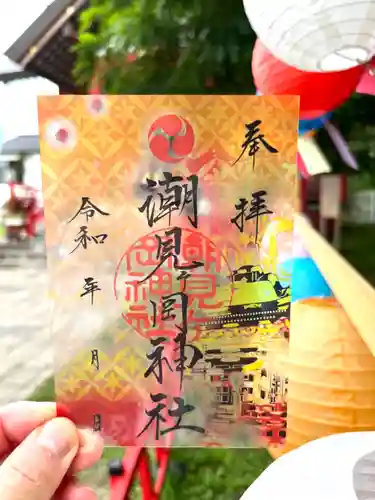 奉拝
潮見ヶ岡神社
令和 年 月 日
潮見ヶ岡神社